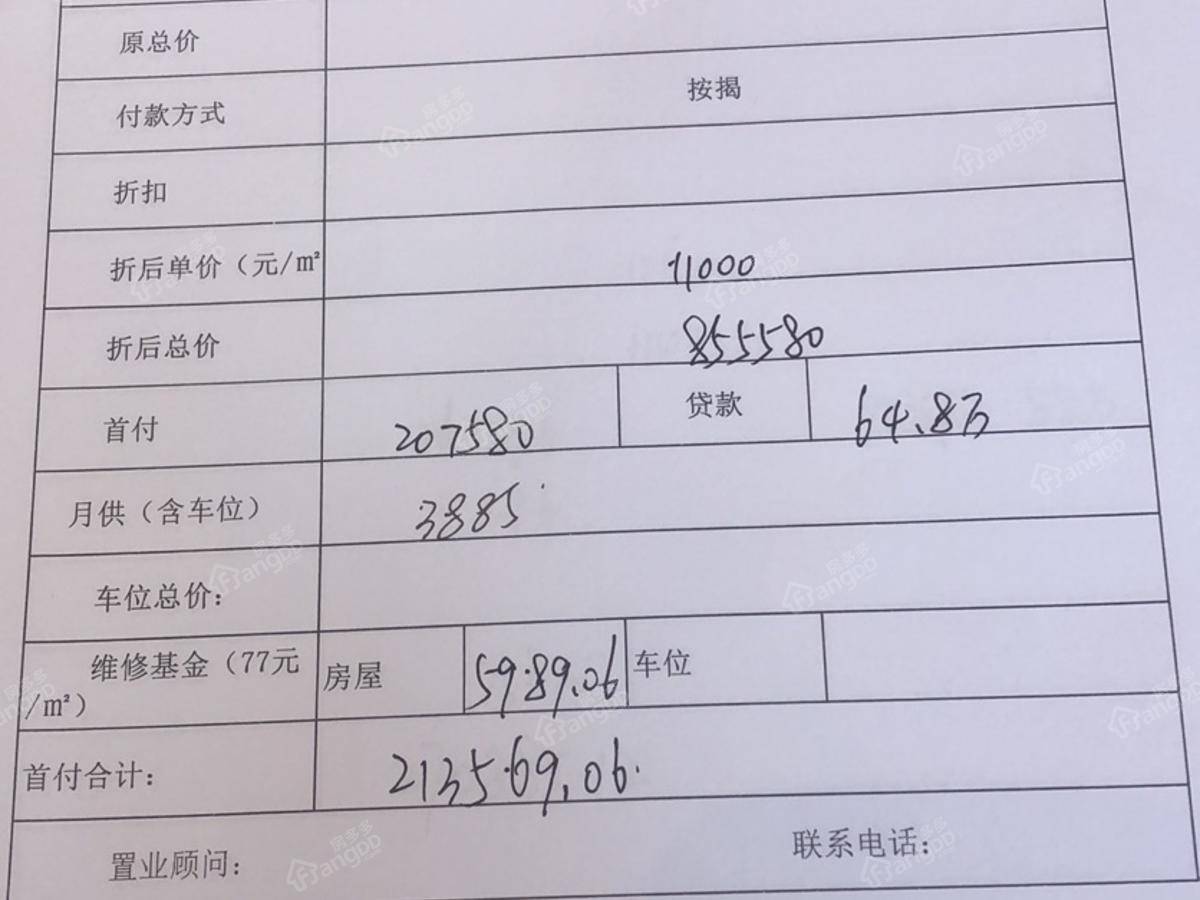 原总价
付款方式 按揭
折扣
折后单价（元/㎡ 11000
折后总价 855580
首付 207580 贷款 64.8万
月供（含车位） 3885
车位总价：
维修基金（77元/㎡） 房屋 5989.06 车位
首付合计： 213569.06
置业顾问： 联系电话：